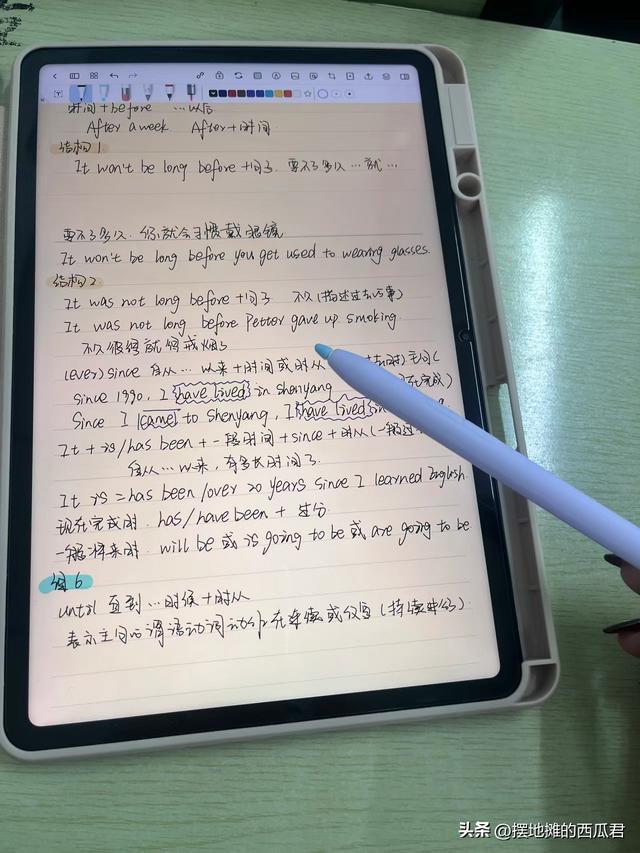 时间+before …以后
After a week. After+时间
结构1
It won't be long before +句子. 要不了多久…就…
要不了多久,你就会习惯戴眼镜
It won't be long before you get used to wearing glasses.
结构2
It was not long before +句子 不久(描述过去的事)
It was not long before Petter gave up smoking.
不久很得就
(ever) since 自从…以来+时间或时从
since 1990, I have lived in shenyang
Since I came to Shenyang, I have lived in
It + is/has been + 一段时间 + since + 时从(一般过
自从…以来,有多长时间了.
It is = has been /over 20 years since I learned English.
现在完成时. has/have been + 过分
一般将来时. will be 或 is going to be 或 are going to be
组6
until 直到…时候+时从
表示主句的谓语动词动作在连续或
头条 @摆地摊的西瓜君